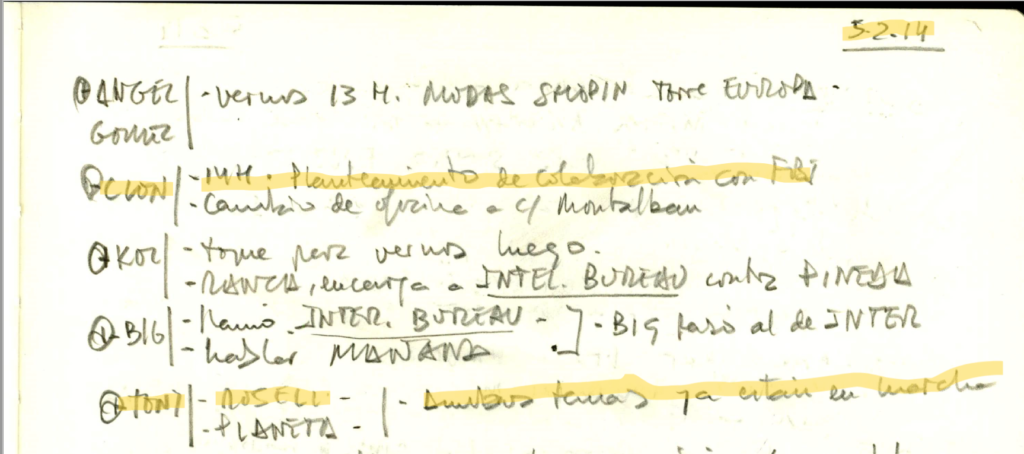 5.2.14
ANGEL GOMEZ | - vernos 13 H. MODAS SHOPIN Torre EUROPA -
CLON | - 14 H. Planteamiento de colaboración con FBI
- Cambio de oficina a c/ Montalban
KOL | - tome para vernos luego.
- RANCIA, encarga a INTEL. BUREAU contra PINEDA
BIG | - llamó INTER. BUREAU - ] - BIG pasó al de INTER
- hablar MAÑANA
TONI | - ROSELL - | - Ambos temas ya están en marcha
- PLANETA -